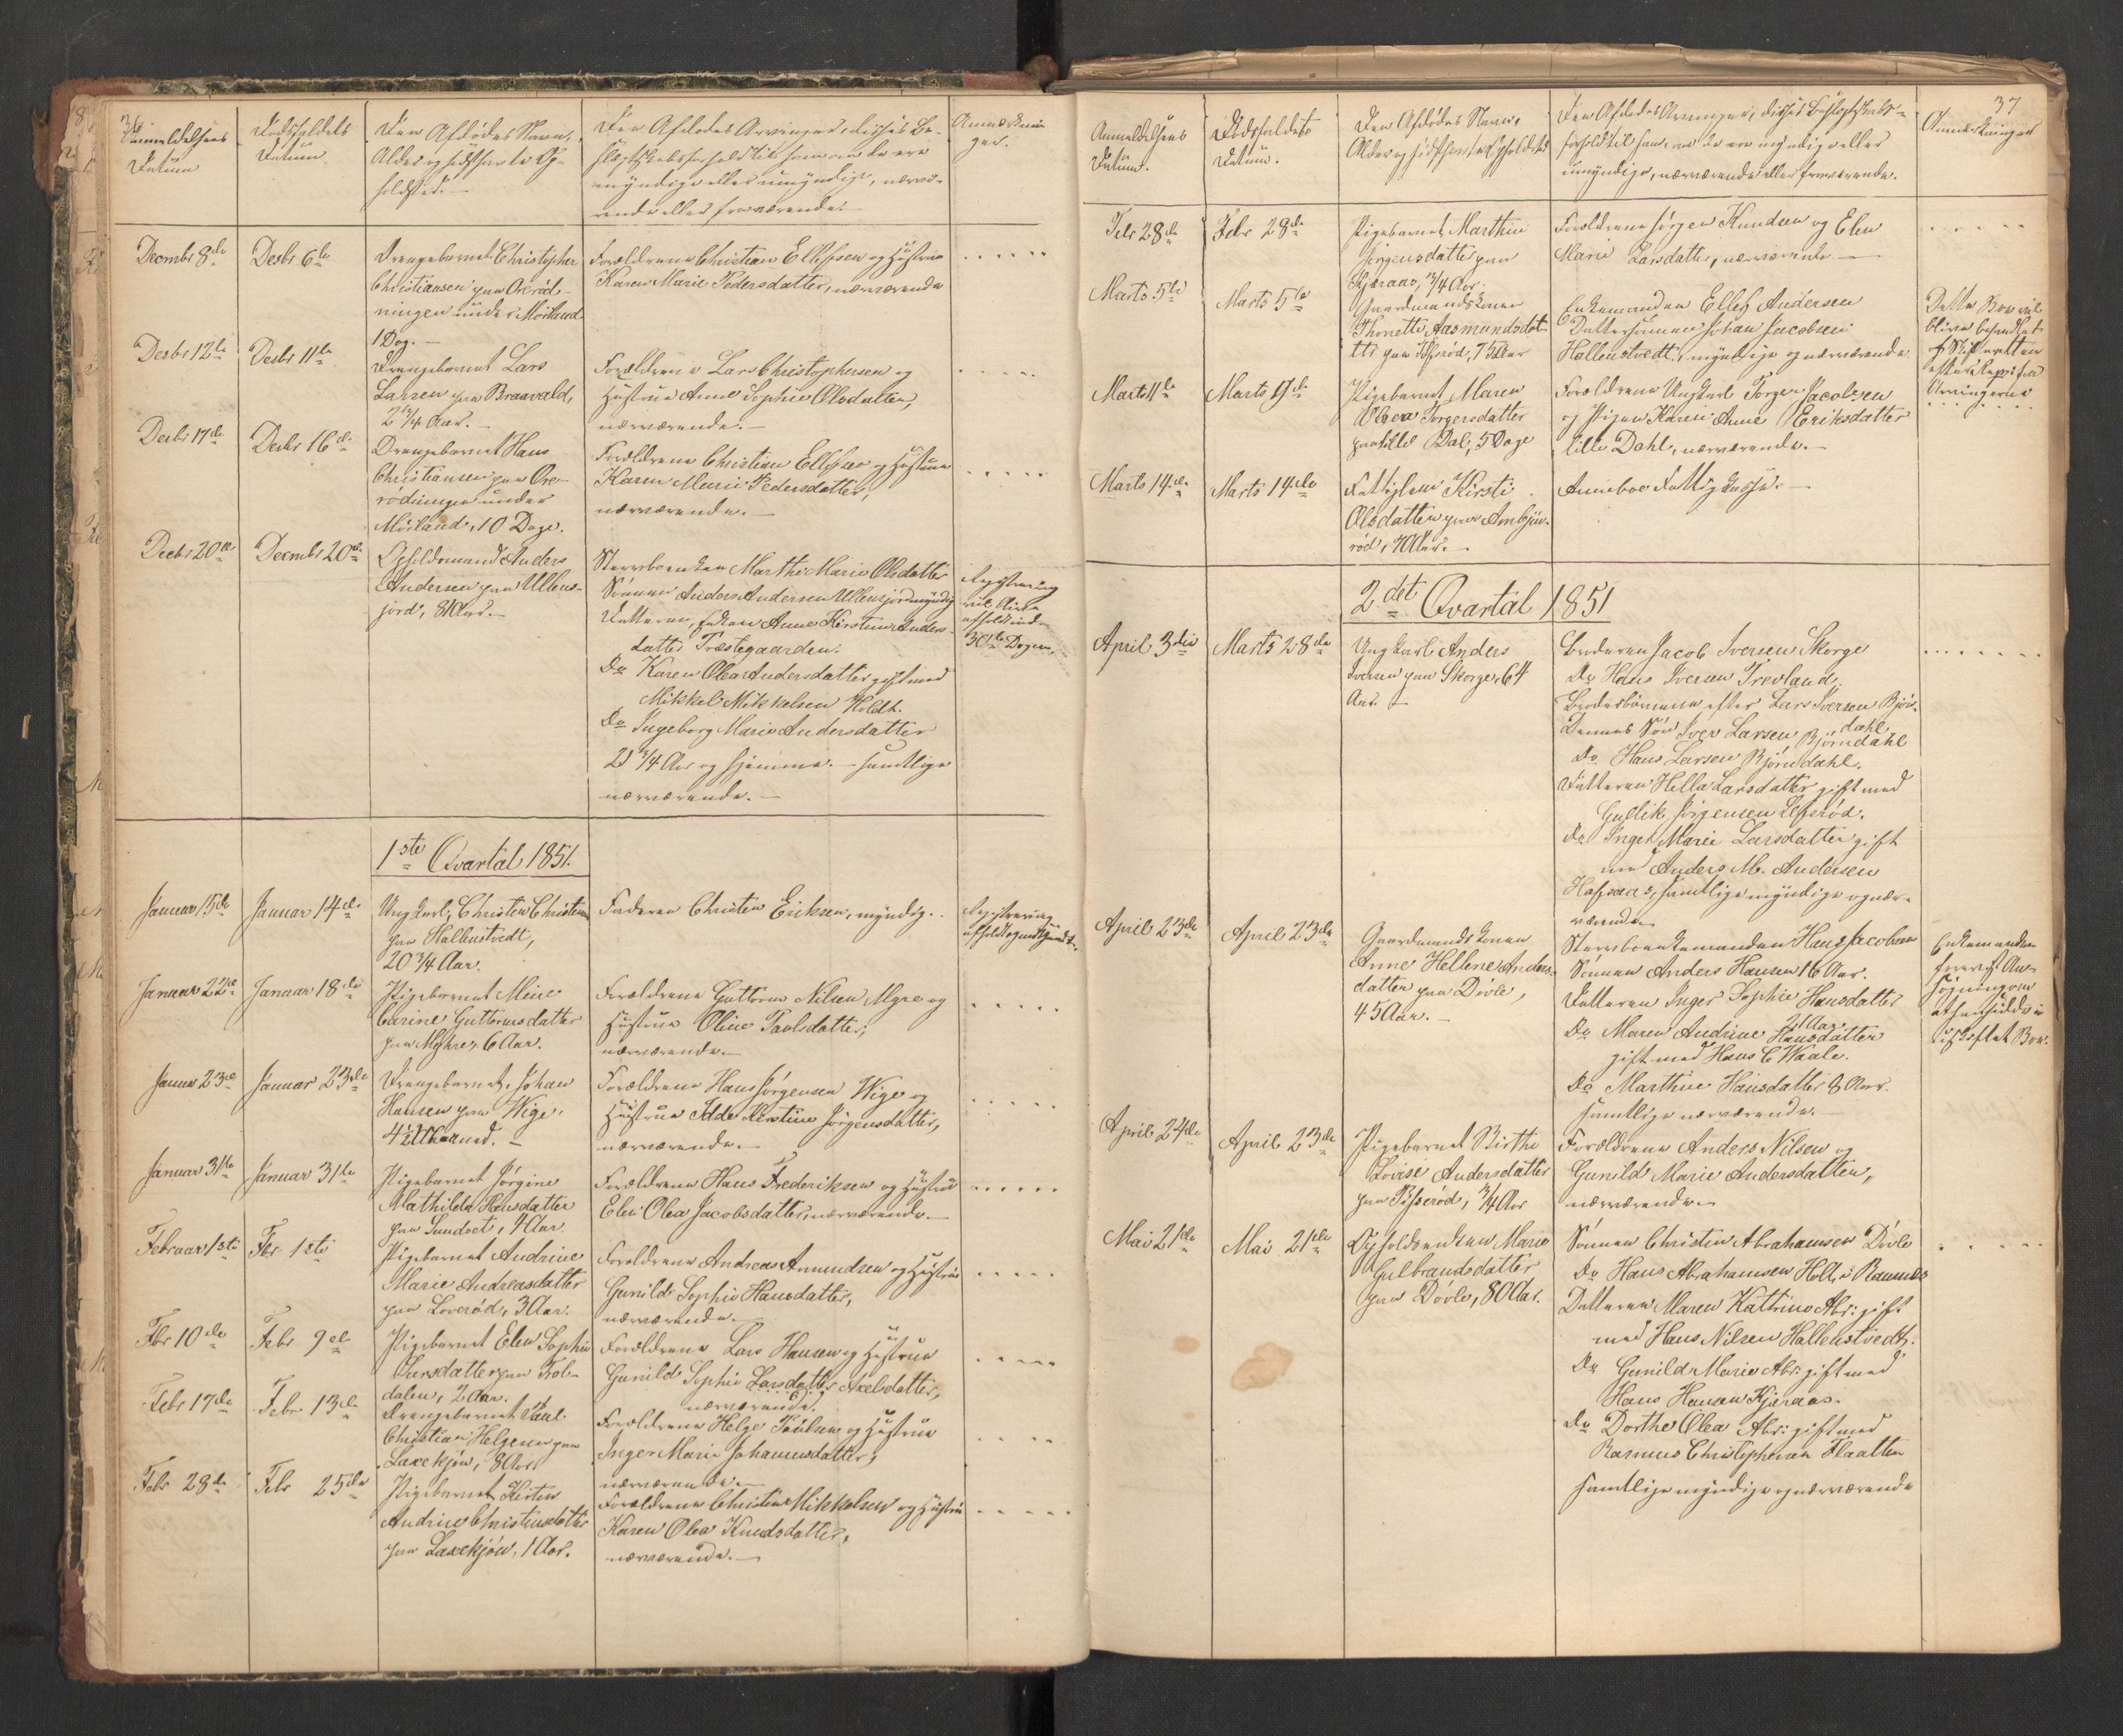 36
Anmeldelsens
Datum
Dødsfaldets
Datum.
Den Afdødes Navn,
Alder og sidste Op-
holdsted.
Den Afdødes Arvinger, disses Be-
slægtskabsforhold til ham, om de ere
myndige eller umyndige, nærvæ-
rende eller fraværende.
Anmærknin
ger.
Decmbr 8de
Desbr 6te
Drengebarnet Christopher
Christiansen paa Oreröd-
ningen under Mörland
1 Dag.
Forældrene Christian Ellefsen og Hustrue
Karen Marie Pedersdatter, nærværende
Desbr 12te
Desbr 11te
Drengebarnet Lars
Larsen paa Braavald,
2 1/4 Aar.
Forældrene Lars Christophersen og
Hustrue Anne Sophie Olsdatter,
nærværende.
Desbr 17de
Desbr 16de
Drengebarnet Hans
Christiansen paa Ore-
rödningen under
Mörland, 10 Dage.
Forældrene Christian Ellefsen og Hustrue
Karen Marie Pedersdatter,
nærværende.
Decbr 20de
Decmbr 20de
Opholdsmand Anders
Andersen paa Ullens-
jord, 81 Aar.
Stervboenken Marthe Marie Olsdatter
Sönnen Anders Andersen Ullensjord myndig
Datteren, Enken Anne Kirstine Anders-
datter Præstegaarden.
Do Karen Olea Andersdatter gift med
Mikkel Mikkelsen Holdt.
Do Ingeborg Marie Andersdatter
21 3/4 Aar og hjemme. samtlige
nærværende.
Registrering
vil blive
afholdt inden
30te Dagen.
1ste Qvartal 1851.
Januar 15de
Januar 14de
Ungkarl, Christen Christensen
paa Hallenstvedt,
20 3/4 Aar.
Faderen Christen Eriksen, myndig.
Registrering
afholdt
Januar 22de
Januar 18de
Pigebarnet Mine
Carine Guttormsdatter
paa Myhre, 6 Aar.
Forældrene Guttorm Nilsen Myre og
Hustrue Oline Paulsdatter,
nærværende.
Januar 23de
Januar 23de
Drengebarnet Johan
Hansen paa Wige,
4 1/2 Maaned.
Forældrene Hans Jörgensen Wige og
Hustrue Idde Kirstine Jörgensdatter,
nærværende.
Januar 31te
Januar 31te
Pigebarnet Jörgine
Mathilde Hansdatter
paa Sundset, 4 Aar.
Forældrene Hans Frederiksen og Hustrue
Elen Olea Jacobsdatter, nærværende.
Februar 1ste
Fbr 1ste
Pigebarnet Andrine
Marie Andreasdatter
paa Loveröd, 3 Aar.
Forældrene Andreas Amundsen og Hustrue
Gunild Sophie Hansdatter,
nærværende.
Fbr 10de
Febr 9de
Pigebarnet Elen Sophie
Larsdatter paa Trol-
dalen, 2 Aar.
Forældrene Lars Hansen og Hustrue
Gunild Sophie Larsdatter Axelsdatter,
nærværende.
Febr 17de
Febr. 13de
Drengebarnet Paul
Christian Helgesen paa
Laxekjön, 8 Aar.
Forældrene Helge Paulsen og Hustrue
Inger Marie Johannesdatter,
nærværende.
Febr 28de
Febr 25de
Pigebarnet Kirsten
Andrine Christensdatter
paa Laxekjön, 1 Aar.
Forældrene Christen Mikkelsen og Hustrue
Karen Olea Knudsdatter,
nærværende.
37
Anmeldelsens
Datum.
Dødsfaldets
Datum.
Den Afdødes Navn,
Alder og sidste Opholdsted
Den Afdødes Arvinger, disses Beslægtskabs-
forhold til ham, om de ere myndige eller
umyndige, nærværende eller fraværende.
Anmærkninger
Febr 28de
Febr 28de
Pigebarnet Marthine
Jörgensdatter paa
Kjæraas, 1 3/4 Aar.
Forældrene Jörgen Knudsen og Elen
Marie Larsdatter, nærværende
Marts 5te
Marts 5te
Gaardmandskonen
Thonette Aasmundsdat-
ter paa Tifseröd, 75 Aar
Enkemanden Ellef Andersen
Dattersönnen Johan Jacobsen
Hallenstvedt, myndige og nærværende.
Dette Bo vil
blive behandlet
af Skifteretten
efter Reqvisition
Arvingerne
Marts 11te
Marts 9de
Pigebarnet Maren
Olea Torgersdatter
paa lille Dal, 5 Dage
Forældrene Ungkarl Torger Jacobsen
og Pigen Karen Anne Eriksdatter
lille Dahl, nærværende.
Marts 14de
Marts 14de
Fattiglem Kirsti
Olsdatter paa Ambjör-
röd, 70 Aar.
Anneboe Fattigkasse.
2det Qvartal 1851
April 3die
Marts 28de
Ungkarl Anders
Iversen paa Skorge, 64
Aar.
Broderen Jacob Iversen Skorge
Do Hans Iversen Trevland.
Broderbörnene efter Lars Iversen Björn-
dahl
Dennes Sön Iver Larsen Björndahl
Do Hans Larsen Björndahl.
Datteren Hella Larsdatter gift med
Gullik Jörgensen Tifseröd.
Do Inger Marie Larsdatter gift
med Anders M. Andersen
Hafsaas, samtlige myndige og nær-
værende
April 23de
April 23de
Gaardmandskonen
Anne Hellene Anders-
datter paa Dövle,
45 Aar.
Stervboenkemanden Hans Jacobsen
Sönnen Anders Hansen 16 Aar.
Datteren Inger Sophie Hansdatter
21 Aar
Do Maren Andrine Hansdatter
gift med Hans C Waale.
Do Marthine Hansdatter 8 Aar.
samtlige nærværende.
Enkemanden
An-
søgning om
at hensidde i
uskiftet Boe.
April 24de
April 23de
Pigebarnet Birthe
Lovise Andersdatter
paa Tifseröd, 3/4 Aar
Forældrene Anders Nilsen og
Gunild Marie Andersdatter,
nærværende
Mai 21de
Mai 21de
Opholdsenken Marie
Gulbrandsdatter
paa Dövle, 80 Aar.
Sönnen Christen Abrahamsen Dövle
Do Hans Abrahamsen Holt, i Ramnes
Datteren Maren Kattrine Abr: gift
med Hans Nilsen Hallenstvedt.
Do Gunild Marie Abr: gift med
Hans Hansen Kjæraas.
Do Dorthe Olea Abr: gift med
Rasmus Christophersen Flaatten
samtlige myndige og nærværende